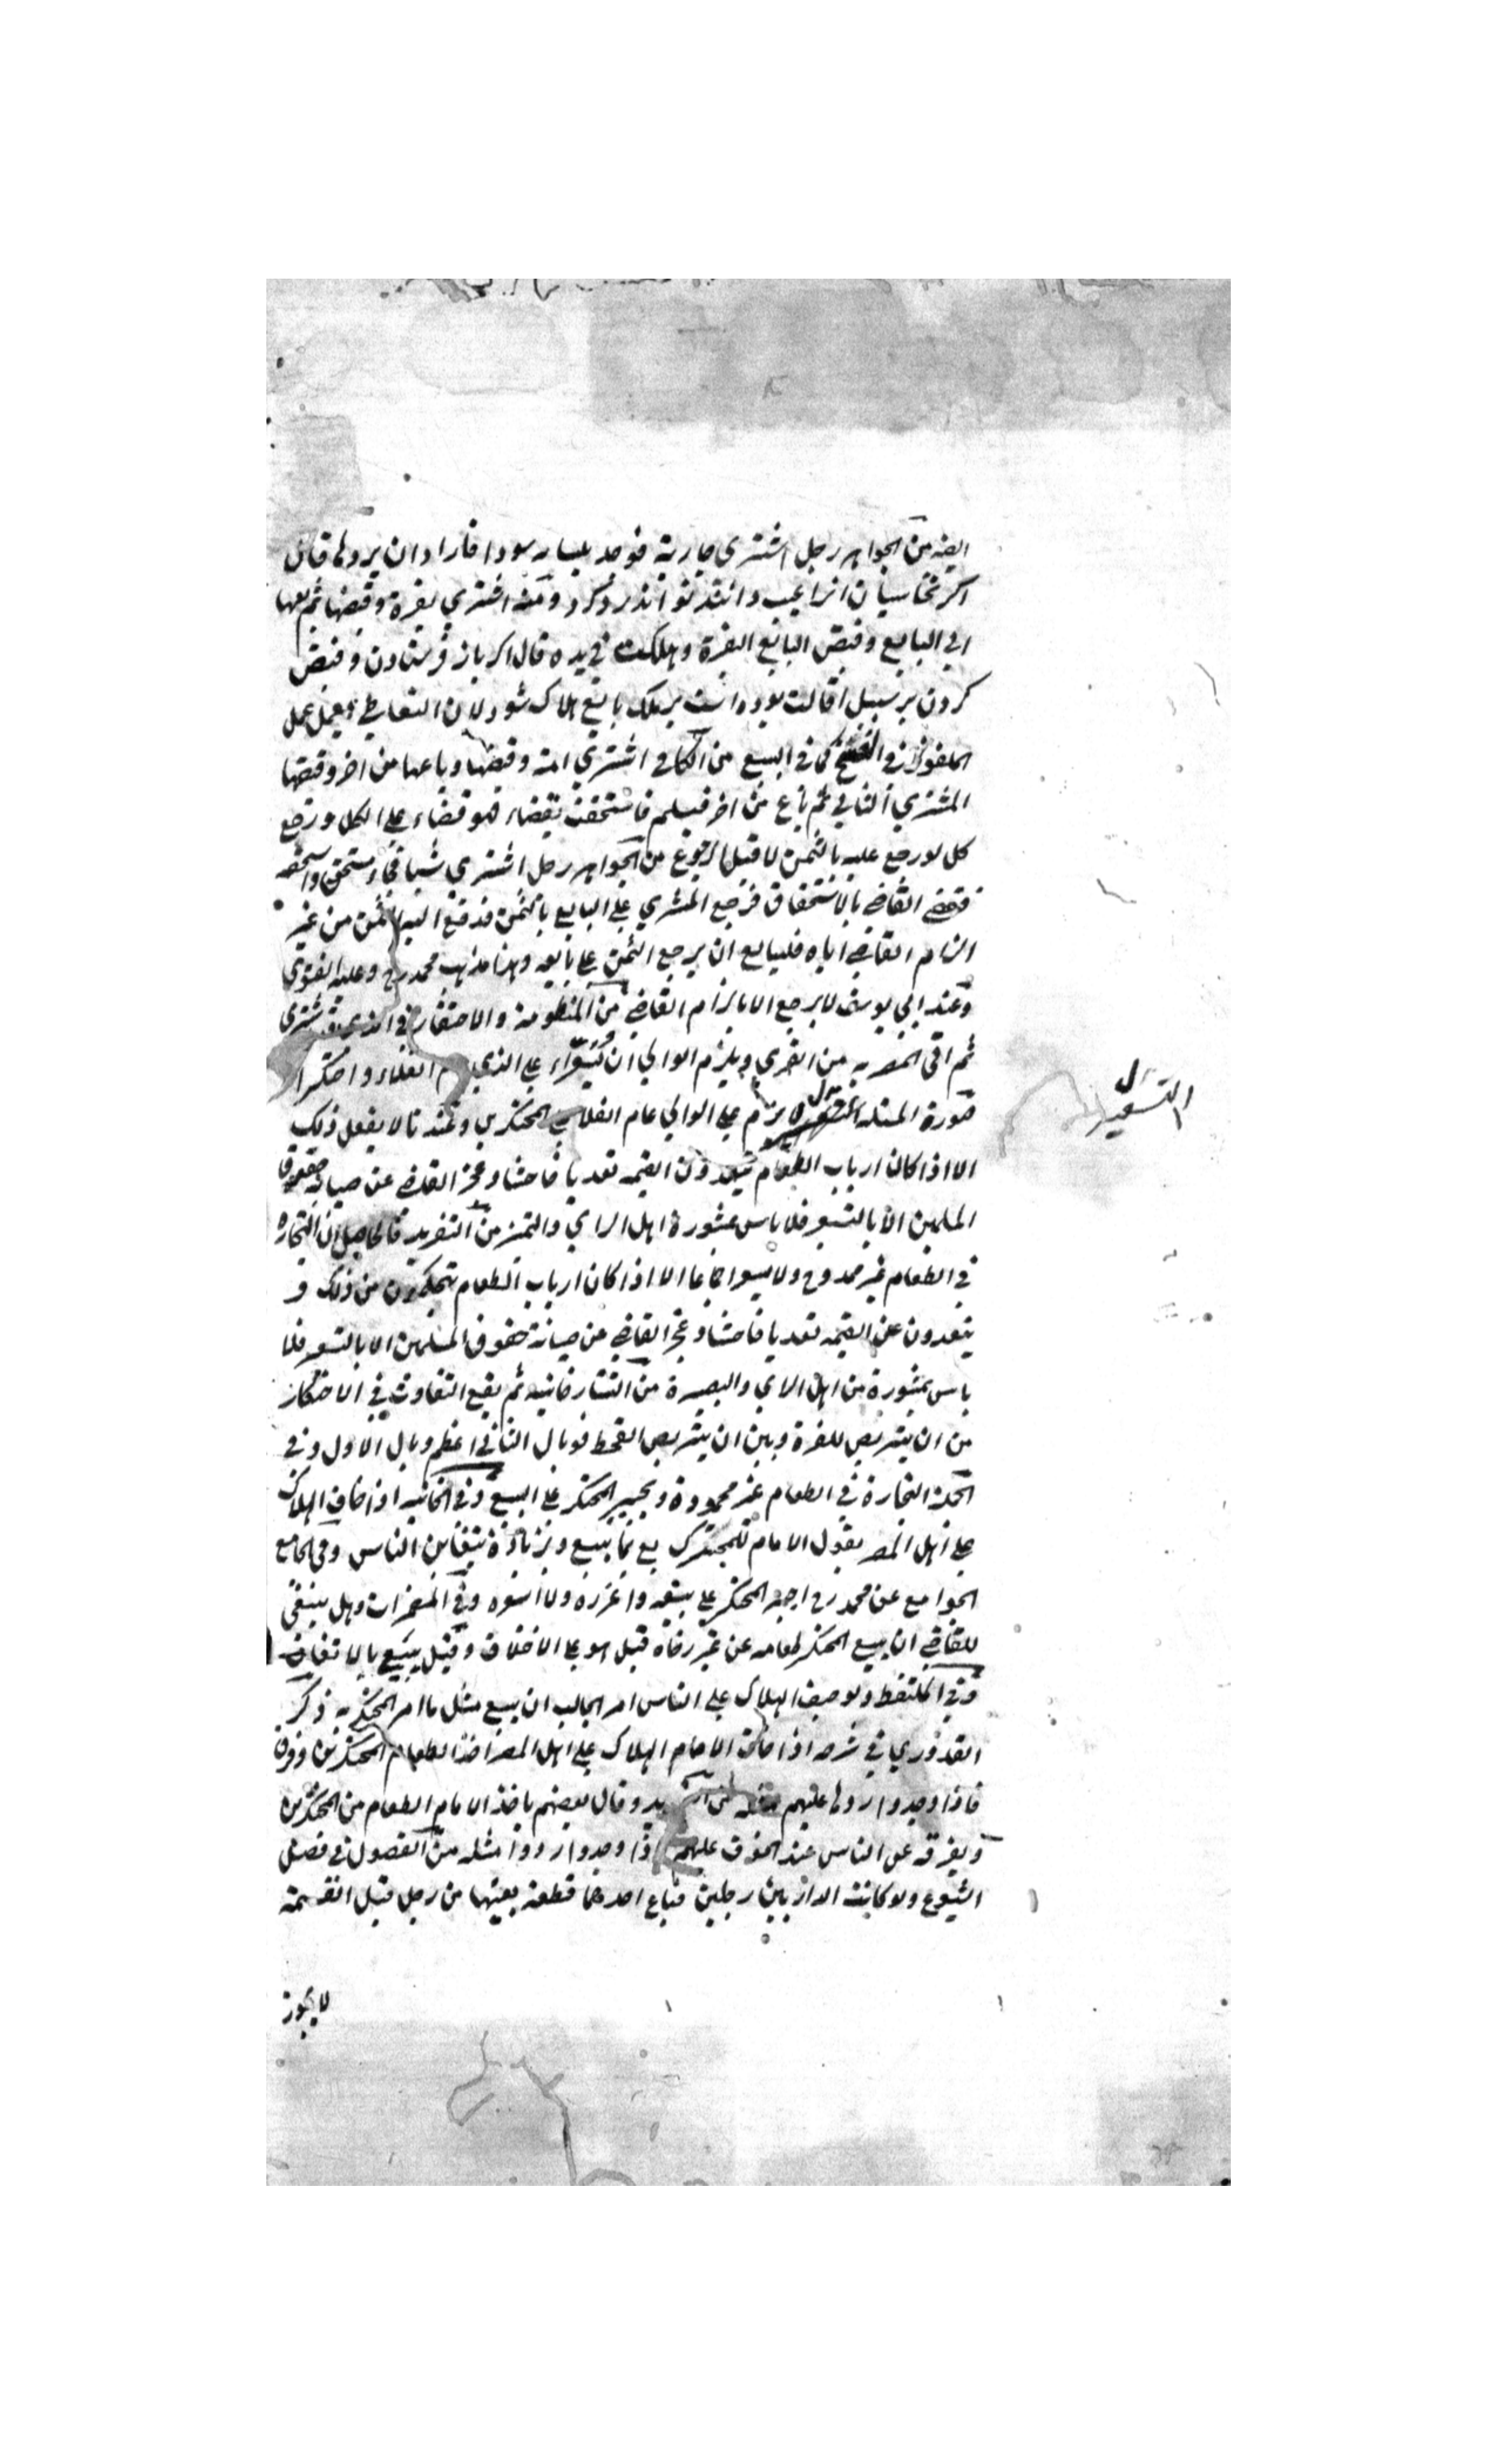 ايضه من الجواهر رجل اشترى جارية فوجد بلسانه سودا فاراد ان يردها قال
اكر نخاسيان انرا عيب دانند تواند رد كرد ومنه اشتري بقرة وقبضها ثم بعها
الى البايع وقبض البائع البقرة وهلكت في يده قال اكر باز فرستادن وقبض
كردن بر سبيل اقالت بوده است بر ملك بايع هلاك شود لان التعاطي يعمل عمل
الملفوظ في الفسخ كما في البيع من الكافي اشتري امة وقبضها وباعها من اخر وقبضها
المشتري الثاني ثم باع من اخر فيسلم فاستحقت بقضاء فهو قضاء على الكل ورجع
كل لو رجع عليه بالثمن لا قبل الرجوع من الجواهر رجل اشترى شيا فجاء مستحق واستحقه
فقضى القاضي بالاستحقاق فرجع المشتري على البايع بالثمن فدفع اليه الثمن من غير
الزام القاضي اياه فلبايع ان يرجع الثمن على بايعه وهذا مذهب محمد رح وعليه الفتوى
وعند ابي يوسف لا يرجع الا بالزام القاضي من المنظومة والاحتكار في الذي قد شترى
ثم اتى المصر به من القرى ويلزم الوالي ان يسعرا على الذي الغلاء واحتكرا
صورة المسئلة يلزم على الوالي عام الغلا المحتكرين وعندنا لا يفعل ذلك
الا اذا كان ارباب الطعام يتعدون القيمه تعديا فاحشا وعجز القاضي عن صيانة حقوق
المسلمين الا بالتسعير فلا باس بمشورة اهل الراي والتميز من التفريد فالحاصل ان التجاره
في الطعام غير ممدوح ولا يسعر اجماعا الا اذا كان ارباب الطعام يتحكمون من ذلك و
يتعدون عن القيمه تعديا فاحشا وعجز القاضي عن صيانة حقوق المسلمين الا بالتسعير فلا
باس بمشورة من اهل الراي والبصيرة من التتارخانيه ثم يقع التفاوت في الاحتكار
من ان يتربص للعزة وبين ان يتربص القحط فوبال الثاني اعظم وبال الاول وفي
الجملة التجارة في الطعام غير محمودة ويجبر المحتكر على البيع وفي الخانيه اذا خاف الهلاك
على اهل المصر يقول الامام للمحتكر بع بما يبيع وبزيادة يتغابن الناس وفي الجامع
الجوامع عن محمد رح اجبر المحتكر على بيعه واعزره ولا اسعره وفي المضمرات وهل ينبغي
للقاضي ان يبيع المحتكر طعامه عن غير رضاه قيل هو على الاختلاف وقيل يبيع بالاتفاق
وفي الملتقط ولو خيف الهلاك على الناس امر الجالب ان يبيع مثل ما امر المحتكر به ذكر
القدوري في شرحه اذا خاف الامام الهلاك على اهل المصر اخذ الطعام المحتكرين وفرقه
فاذا وجدوا ردوا عليهم مثله وقال بعضهم ياخذ الامام الطعام من المحتكرين
ويفرقه على الناس عند الخوف عليهم اذا وجدوا ردوا مثله من الفصول في فصل
الشيوع ولو كانت الدار بين رجلين فباع احدهما قطعة بعينها من رجل قبل القسمة
لا يجوز
التسعير